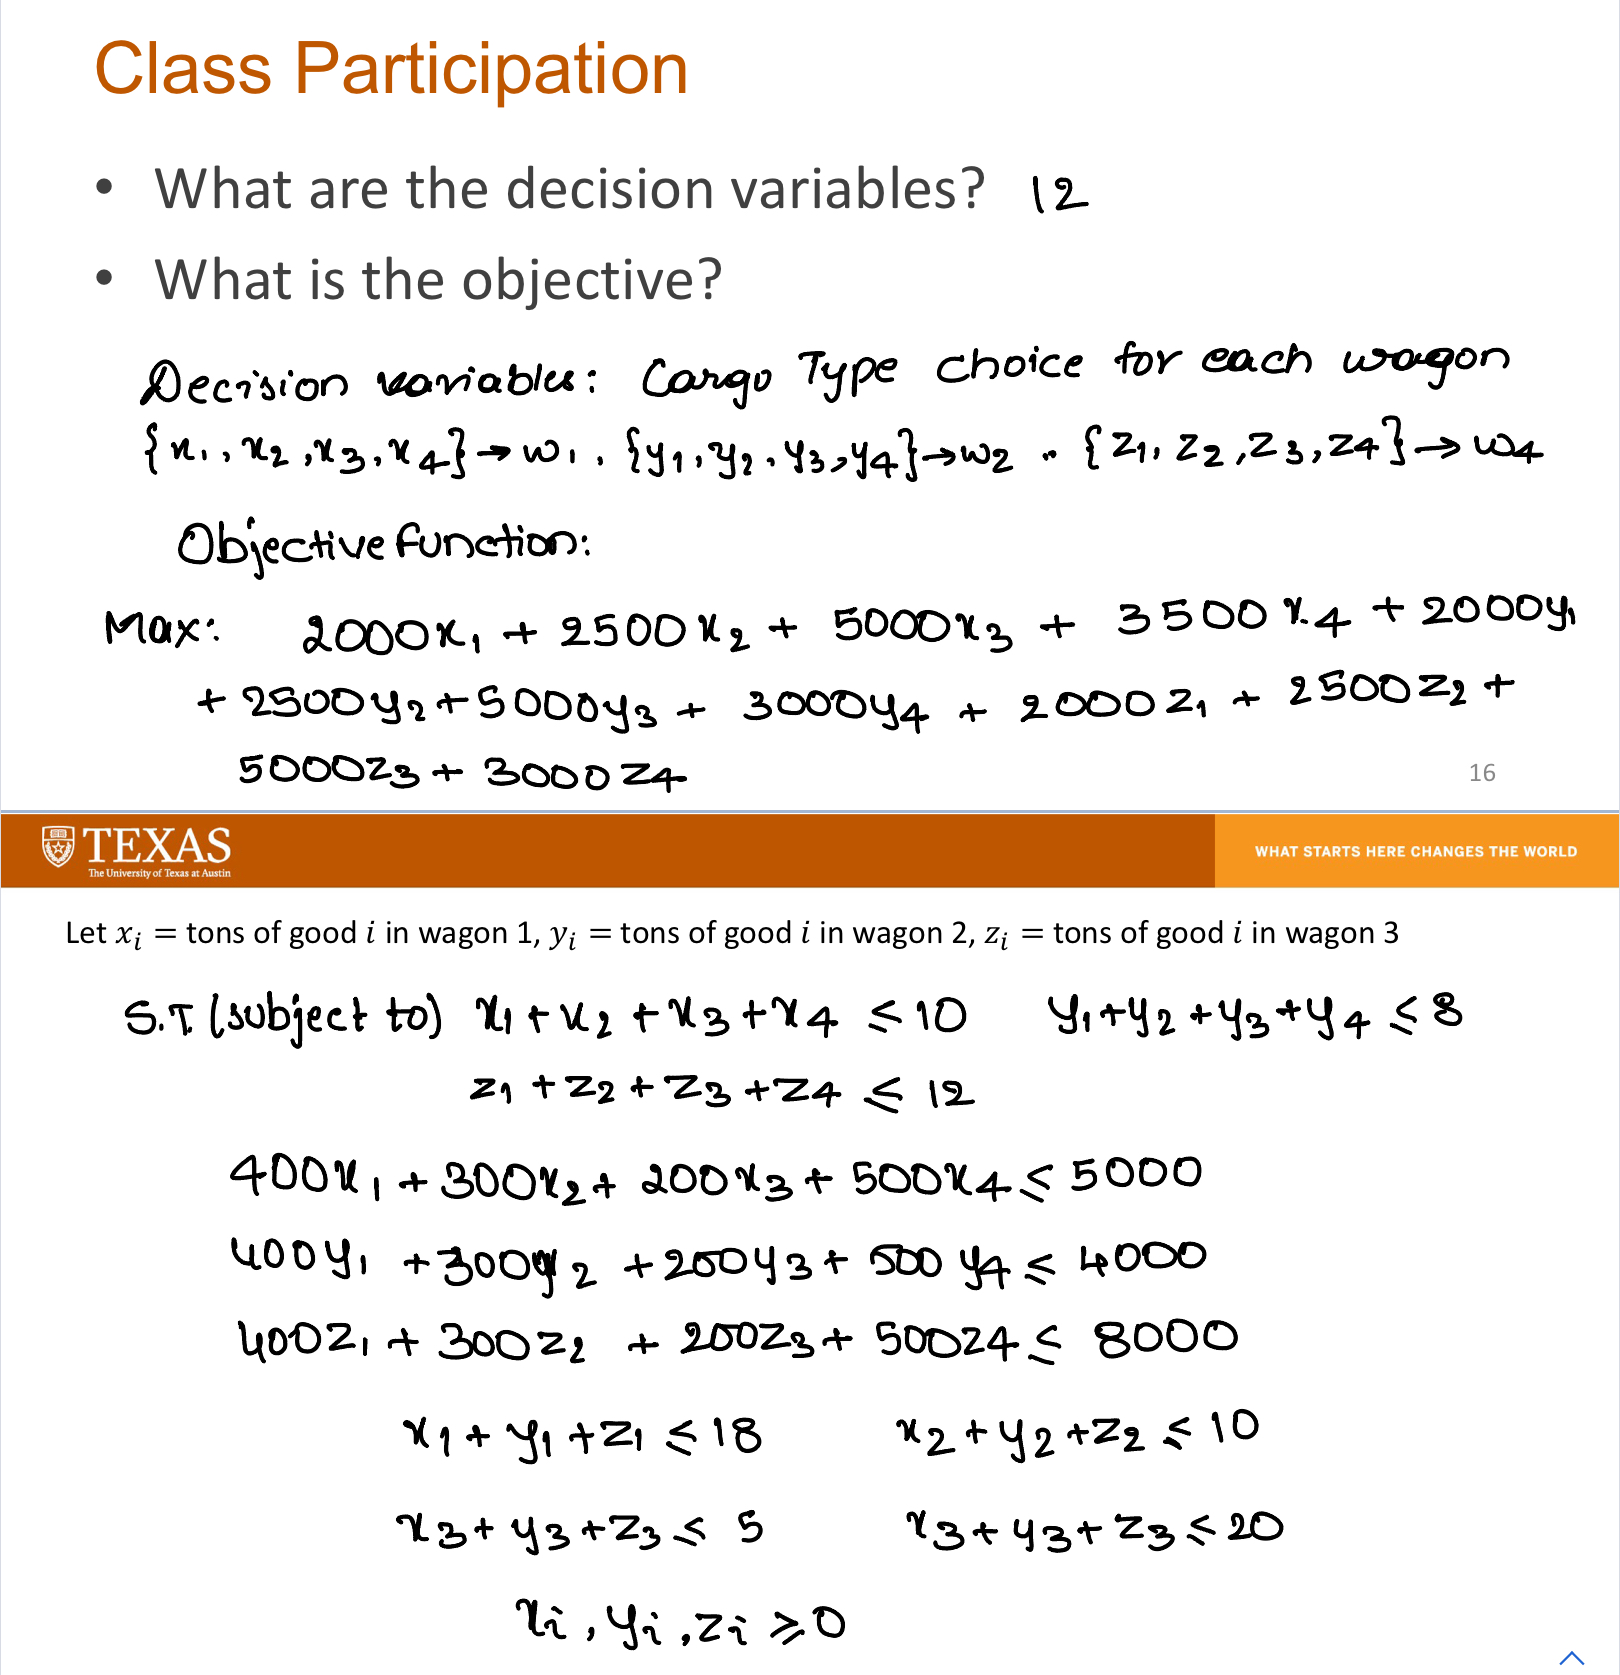 Class Participation
• What are the decision variables? 12
• What is the objective?
Decision variables: Cargo Type choice for each wagon
{x1, x2, x3, x4} → w1, {y1, y2, y3, y4} → w2 .. {z1, z2, z3, z4} → w4
Objective function:
Max: 2000x1 + 2500x2 + 5000x3 + 3500x4 + 2000y1
+ 2500y2 + 5000y3 + 3000y4 + 2000z1 + 2500z2 +
5000z3 + 3000z4
16
TEXAS
The University of Texas at Austin
WHAT STARTS HERE CHANGES THE WORLD
Let xi = tons of good i in wagon 1, yi = tons of good i in wagon 2, zi = tons of good i in wagon 3
S.T (subject to) x1 + x2 + x3 + x4 ≤ 10 y1 + y2 + y3 + y4 ≤ 8
z1 + z2 + z3 + z4 ≤ 12
400x1 + 300x2 + 200x3 + 500x4 ≤ 5000
400y1 + 300y2 + 200y3 + 500y4 ≤ 4000
400z1 + 300z2 + 200z3 + 500z4 ≤ 8000
x1 + y1 + z1 ≤ 18 x2 + y2 + z2 ≤ 10
x3 + y3 + z3 ≤ 5 x3 + y3 + z3 ≤ 20
xi, yi, zi ≥ 0